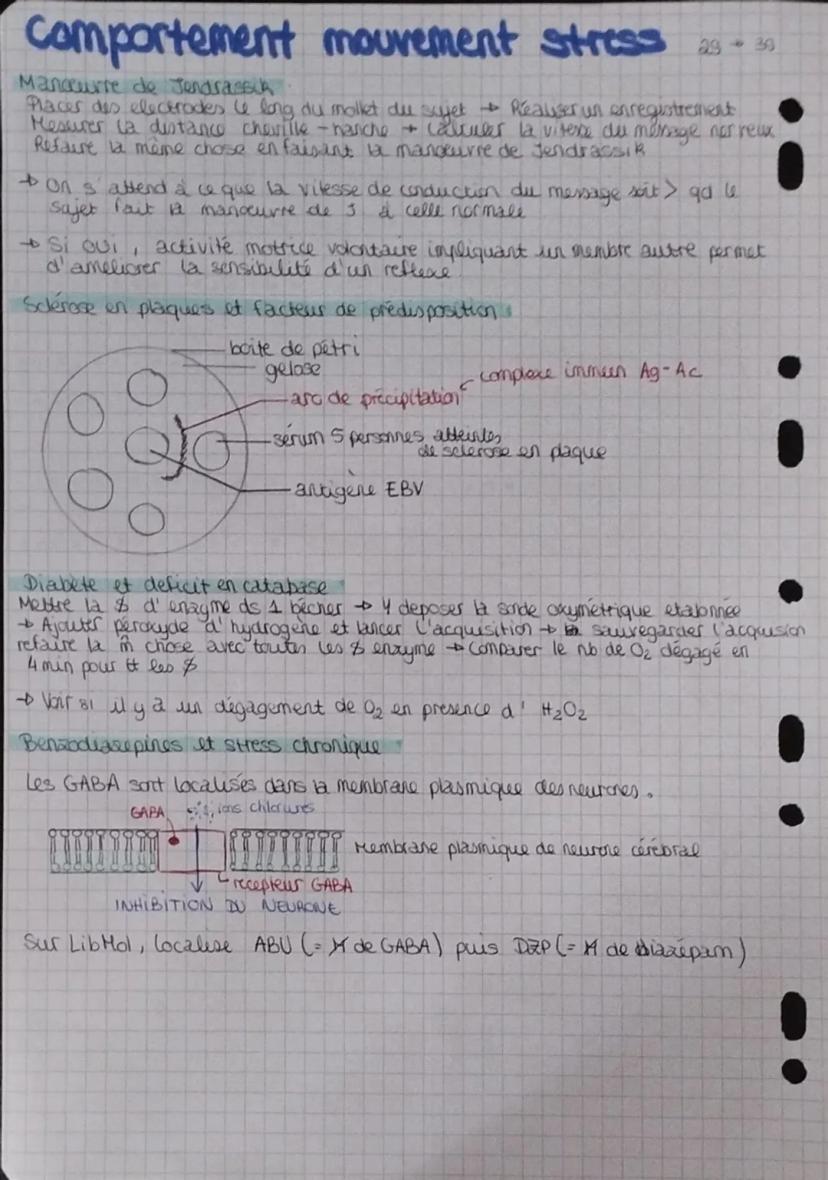 Comportement mouvement stress 29 → 30
Manœuvre de Jendrassik
Placer des electrodes le long du mollet du sujet → Réaliser un enregistrement
Mesurer la distance cheville - hanche → calculer la vitesse du message nerveux
Refaire la même chose en faisant la manœuvre de Jendrassik
→ On s'attend à ce que la vitesse de conduction du message soit > qd le
sujet fait la manœuvre de J à celle normale
→ Si oui, activité motrice volontaire impliquant un membre autre permet
d'ameliorer la sensibilité d'un reflexe
Sclérose en plaques et facteur de prédisposition
boite de pétri
gelose
complexe immun Ag-Ac
arc de précipitation
sérum 5 personnes atteintes
de sclerose en plaque
antigène EBV
Diabète et deficit en catabase
Mettre la $ d'enzyme ds 1 bécher → Y deposer la sonde oxymétrique etalonnée
→ Ajouter peroxyde d'hydrogène et lancer l'acquisition → sauvegarder l'acquision
refaire la m̂ chose avec toutes les $ enzyme → Comparer le nb de O₂ dégagé en
4 min pour tt les $
→ Voir si il y a un dégagement de O₂ en presence d' H₂O₂
Benzodiasepines et stress chronique
Les GABA sont localisés dans la membrane plasmique des neurones.
GABA ions chlorures
Membrane plasmique de neurone cérébral
recepteur GABA
INHIBITION DU NEURONE
Sur LibMol, localise ABU (= M de GABA) puis DZP (= M de diazépam)